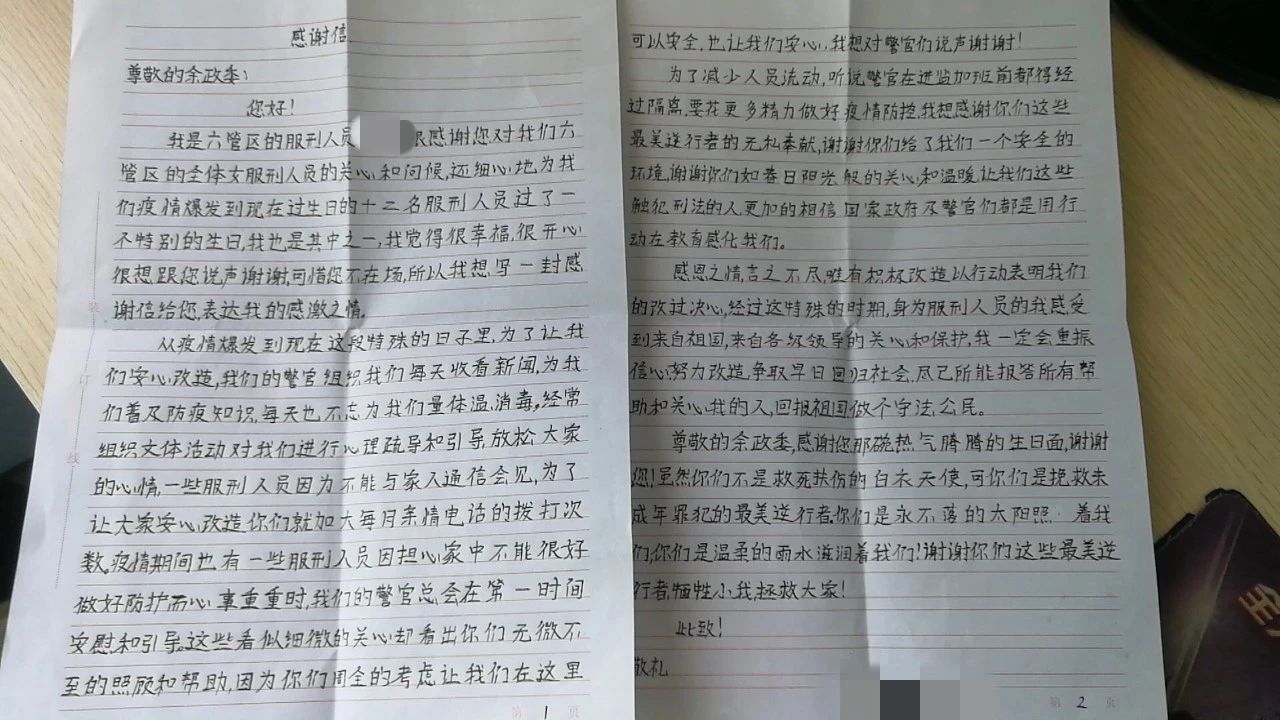 感谢信
尊敬的余政委:
您好!
我是六管区的服刑人员 很感谢您对我们六
管区的全体女服刑人员的关心和问候,还细心地为我
们疫情爆发到现在过生日的十二名服刑人员过了一
不特别的生日,我也是其中之一,我觉得很幸福,很开心
很想跟您说声谢谢,可惜您不在场,所以我想写一封感
谢信给您,表达我的感激之情。
从疫情爆发到现在这段特殊的日子里,为了让我
们安心改造,我们的警官组织我们每天收看新闻,为我
们普及防疫知识,每天也不忘为我们量体温,消毒,经常
组织文体活动对我们进行心理疏导和引导放松大家
的心情,一些服刑人员因为不能与家人通信会见,为了
让大家安心改造你们就加大每月亲情电话的拨打次
数,疫情期间也有一些服刑人员因担心家中不能很好
做好防护而心事重重时,我们的警官总会在第一时间
安慰和引导,这些看似细微的关心却看出你们无微不
至的照顾和帮助,因为你们周全的考虑让我们在这里
第 1 页
可以安全,也让我们安心,我想对警官们说声谢谢!
为了减少人员流动,听说警官在进监加班前都得经
过隔离,要花更多精力做好疫情防控,我想感谢你们这些
最美逆行者的无私奉献,谢谢你们给了我们一个安全的
环境,谢谢你们如春日阳光般的关心和温暖让我们这些
触犯刑法的人更加的相信国家政府及警官们都是用行
动在教育感化我们。
感恩之情言之不尽,唯有积极改造以行动表明我们
的改过决心,经过这特殊的时期,身为服刑人员的我感受
到来自祖国,来自各级领导的关心和保护,我一定会重振
信心,努力改造,争取早日回归社会,尽己所能报答所有帮
助和关心我的人,回报祖国做个守法公民。
尊敬的余政委,感谢您那碗热气腾腾的生日面,谢谢
您!虽然你们不是救死扶伤的白衣天使,可你们是挽救未
成年罪犯的最美逆行者,你们是永不落的太阳照 着我
们,你们是温柔的雨水滋润着我们!谢谢你们这些最美逆
行者,牺牲小我,拯救大家!
此致!
敬礼
第 2 页
装
订
线